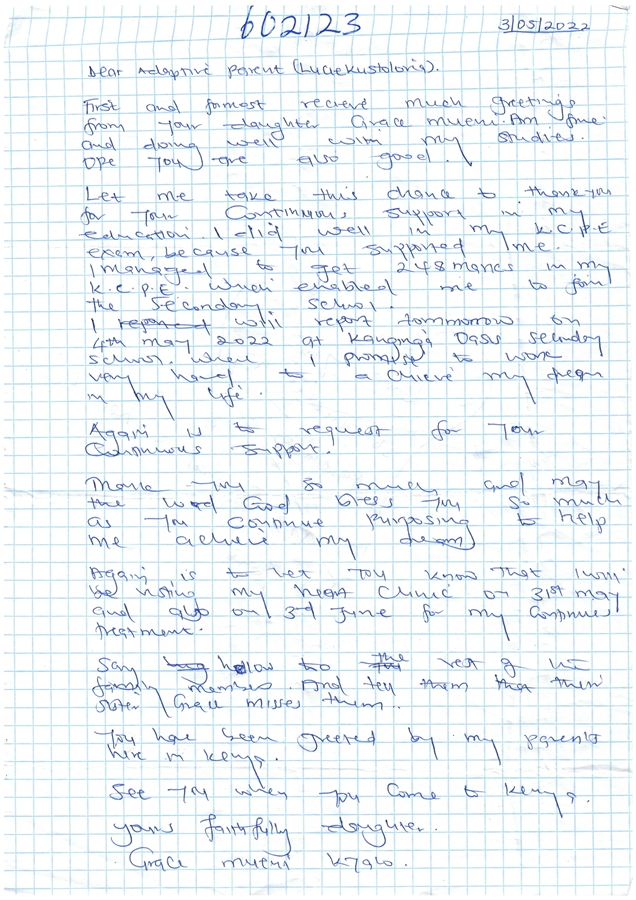 602123
3/05/2022
Dear Adaptive parent (Luciekustoloria).
First and formost recieve much greetings
from your daughter Grace mueni. Am fine
and doing well with my studies.
ope you are also good.
Let me take this chance to thankyou
for your Continuous support in my
education. I did well in my K.C.P.E
exam, because you supported me.
I managed to get 248 marks in my
K.C.P.E. when enabled me to join
the secondary school.
I will report tommorrow on
4th may 2022 at Oasis secondary
school. when I promise to work
very hard to achieve my dream
in my life.
Again is to request for your
Continuous support.
Thank you so much, and may
the God bless you so much
as you continue purposing to help
me achieve my dream
Again is to let you know that I will
be my heart clinic on 31st may
and also on 3rd June for my continues
treatment.
Say hellow to the rest of
family members. And tell them that their
sister Grace misses them..
You have been greeted by my parents
here in Kenya.
See you when you come to Kenya.
yours faithfully daughter.
Grace mueni Kyalo.